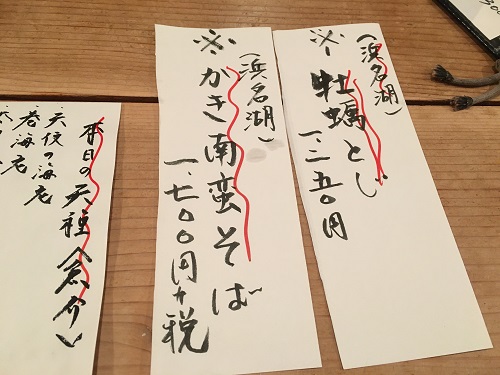 (浜名湖)
※牡蠣とじ
一、二五〇円
(浜名湖)
※かき南蛮そば
一、七〇〇円+税
本日の天種
・天使の海老
・巻海老